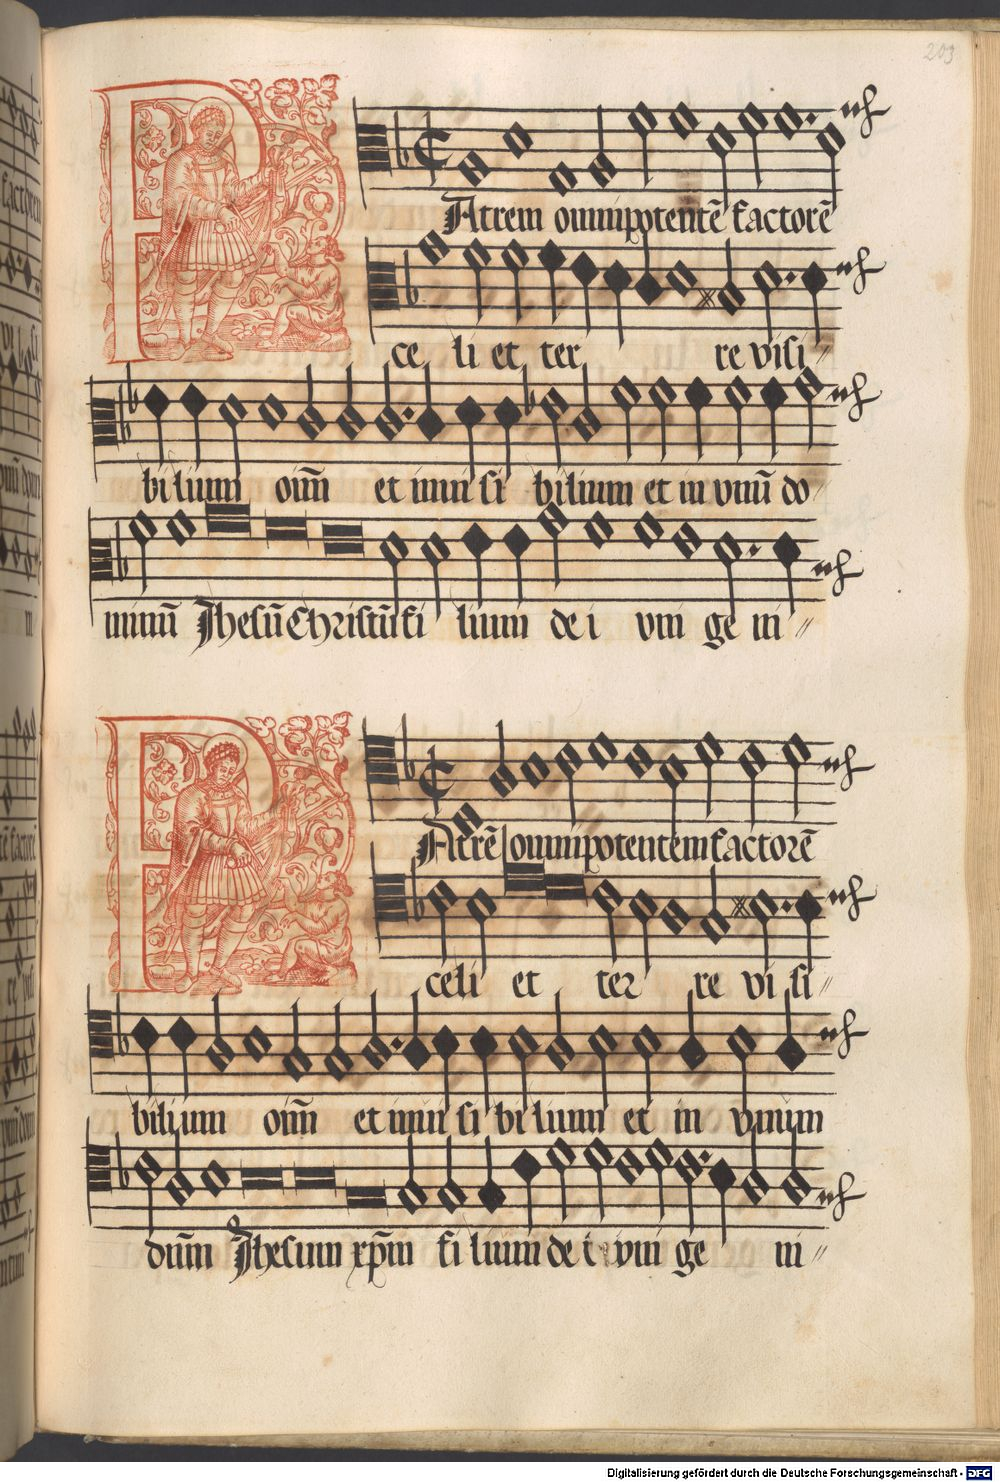 203
PAtrem omnipotentē factorē
celi et ter re visi //
bilium oim̄ et invisi bilium et in vnū do //
minū Jhesū Christū fi lium de i vni ge ni //
PAtrē omnipotentem factorē
celi et ter re vi si //
bilium oim̄ et invi si bi lium et in vnum
dium̄ Jhesum xp̄m fi lium de i vni ge ni //
Digitalisierung gefördert durch die Deutsche Forschungsgemeinschaft - DFG